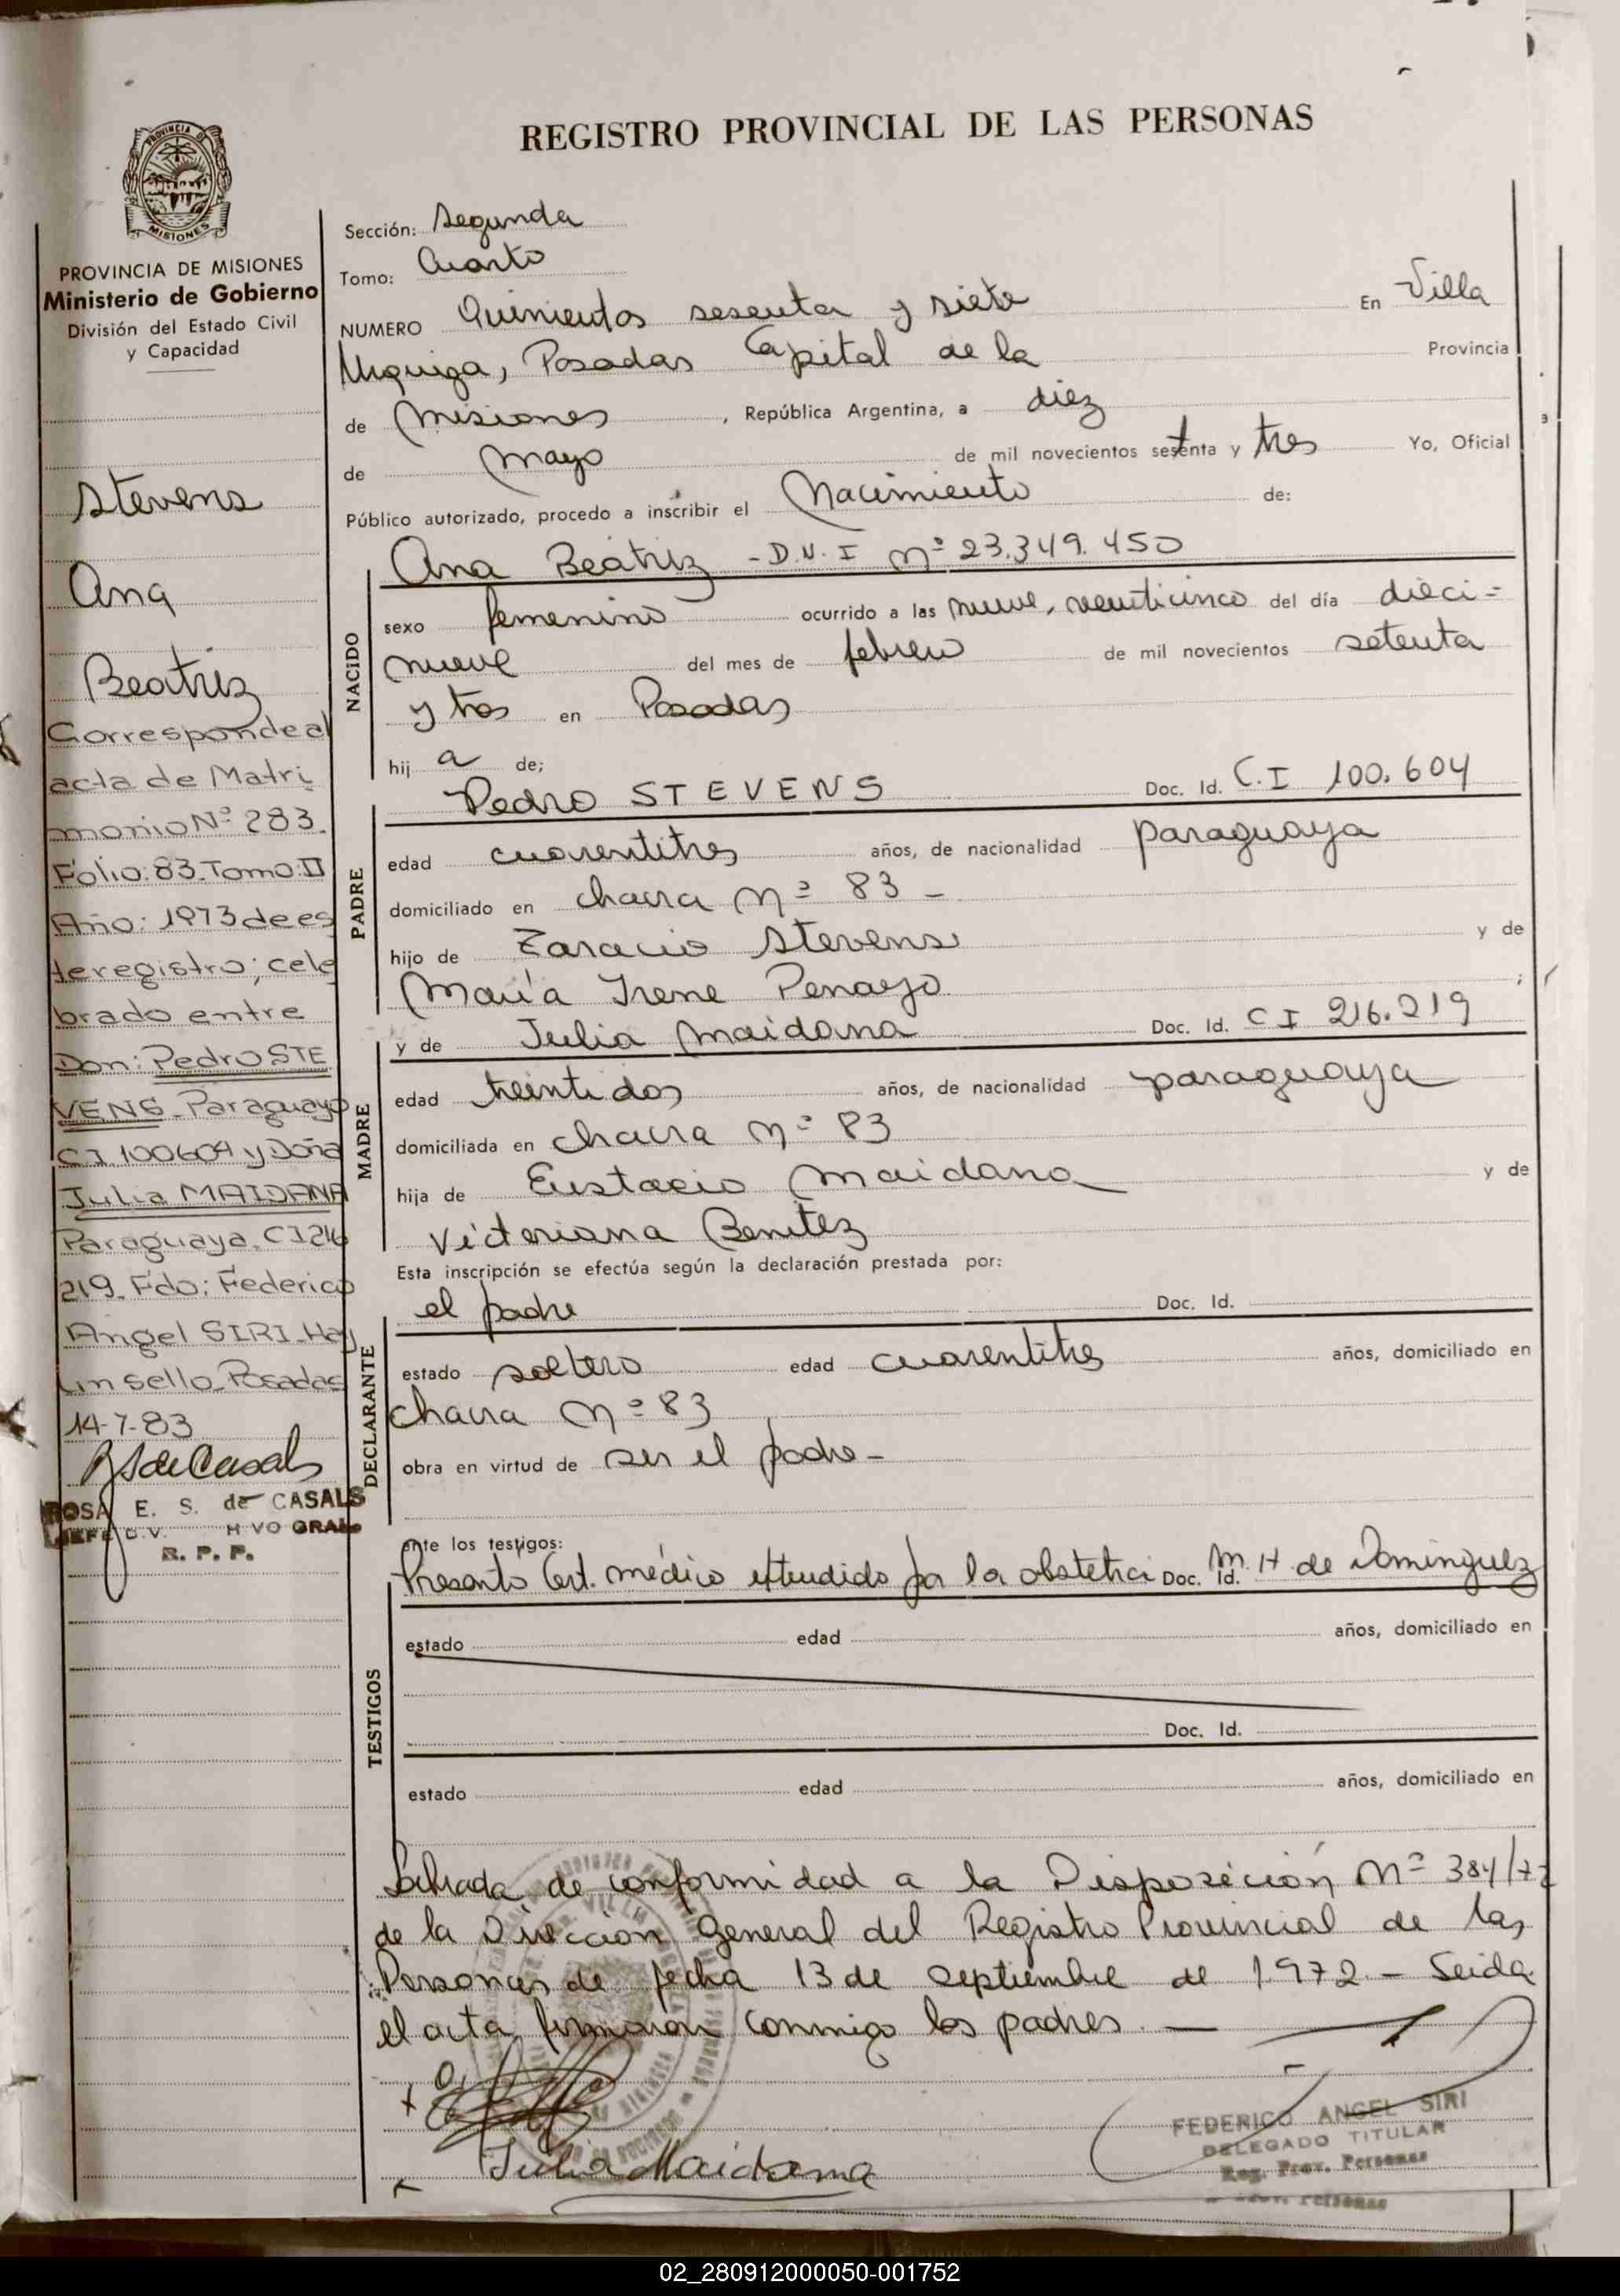 REGISTRO PROVINCIAL DE LAS PERSONAS
PROVINCIA DE
MISIONES
PROVINCIA DE MISIONES
Ministerio de Gobierno
División del Estado Civil
y Capacidad
Stevens
Ana
Beatriz
Corresponde al
acta de Matri
monio Nº 283.
Folio: 83. Tomo: II
Año: 1973 de es
te registro; cele
brado entre
Don: Pedro STE
VENS. Paraguayo
CI. 100604 y Doña
Julia MAIDANA
Paraguaya. CI 216
219. Fdo: Federico
Angel SIRI. Hay
un sello. Posadas
14-7-83
RSdeCasals
ROSA E. S. de CASALS
JEFE D.V. H VO GRAL.
R. P. P.
Sección: Segunda
Tomo: Cuarto
NUMERO Quinientos sesenta y siete En Villa
Urquiza, Posadas Capital de la Provincia
de Misiones, República Argentina, a diez
de Mayo de mil novecientos setenta y tres Yo, Oficial
Público autorizado, procedo a inscribir el Nacimiento de:
Ana Beatriz - D.N.I Nº 23.349.450
NACIDO
sexo femenino ocurrido a las nueve, veinticinco del día dieci=
nueve del mes de febrero de mil novecientos setenta
y tres en Posadas
hij a de;
Pedro STEVENS Doc. Id. C.I 100.604
PADRE
edad cuarentitres años, de nacionalidad paraguaya
domiciliado en chacra Nº 83 -
hijo de Zaracio Stevens y de
María Irene Penayo ;
y de Julia Maidana Doc. Id. C I 216.219
MADRE
edad treintidos años, de nacionalidad paraguaya
domiciliada en chacra Nº 83
hija de Eustacio Maidana y de
Victoriana Benitez
Esta inscripción se efectúa según la declaración prestada por:
el padre Doc. Id.
DECLARANTE
estado soltero edad cuarentitres años, domiciliado en
chacra Nº 83
obra en virtud de ser el padre -
ante los testigos:
Presentó Cert. médico extendido por la obstetra Doc. Id. M. H. de Dominguez
TESTIGOS
estado edad años, domiciliado en
Doc. Id.
estado edad años, domiciliado en
Labrada de conformidad a la Disposición Nº 384/72
de la Dirección General del Registro Provincial de las
Personas de fecha 13 de septiembre de 1972 - Leida
el acta, firmaron conmigo los padres. -
Julia Maidana
FEDERICO ANGEL SIRI
DELEGADO TITULAR
Reg. Prov. Personas
02_280912000050-001752